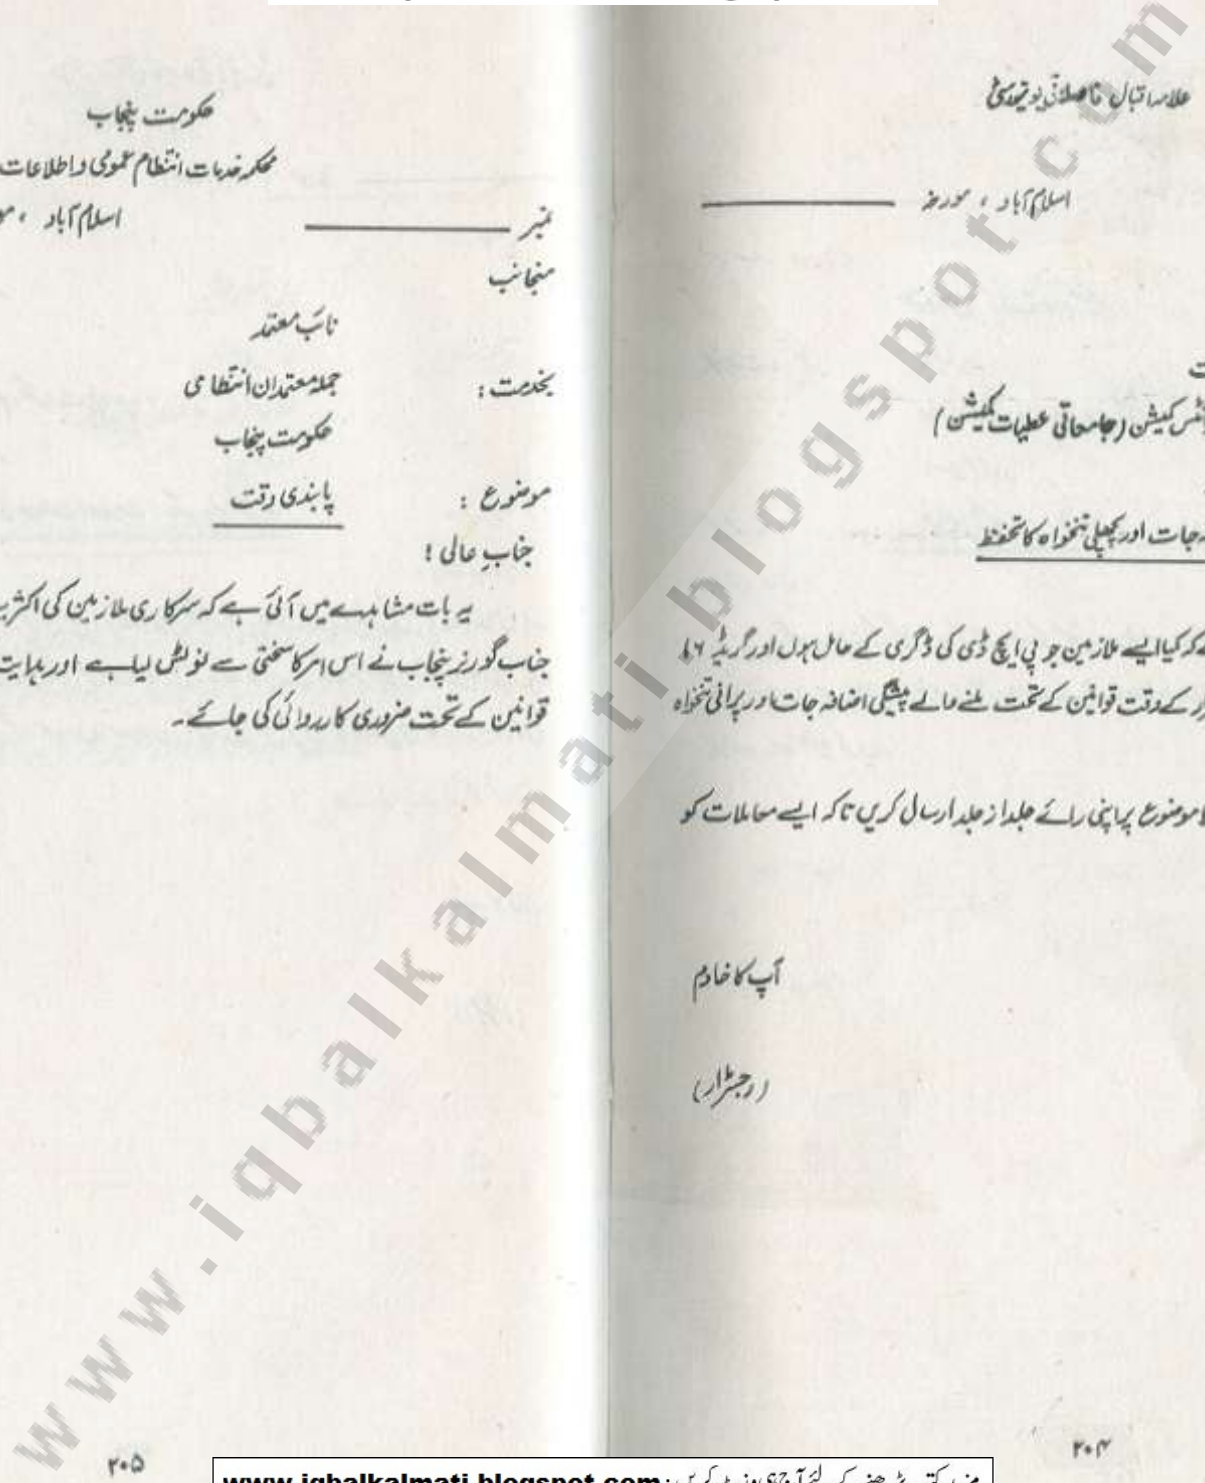 علامہ اقبال فاصلاتی یونیورسٹی
اسلام آباد ، مورخہ
کمیشن (جامعاتی عطیات کمیشن)
جات اور پچھلی تنخواہ کا تحفظ
کہ کیا ایسے ملازمین جو پی ایچ ڈی کی ڈگری کے حامل ہوں اور گریڈ ۱۶
کے وقت قوانین کے تحت ملنے والے پیشگی اضافہ جات اور پرانی تنخواہ
موضوع پر اپنی رائے جلد از جلد ارسال کریں تاکہ ایسے معاملات کو
آپ کا خادم
(رجسٹرار)
۲۰۴
حکومت پنجاب
محکمہ خدمات انتظام عمومی و اطلاعات
نمبر اسلام آباد ،
منجانب
نائب معتمد
بخدمت : جملہ معتمدان انتظامی
حکومت پنجاب
موضوع : پابندی وقت
جناب عالی !
یہ بات مشاہدے میں آئی ہے کہ سرکاری ملازمین کی
جناب گورنر پنجاب نے اس امر کا سختی سے نوٹس لیا ہے اور
قوانین کے تحت ضروری کارروائی کی جائے۔
۲۰۵
www.iqbalkalmati.blogspot.com
مزید کتب پڑھنے کے لئے آج ہی وزٹ کریں : www.iqbalkalmati.blogspot.com